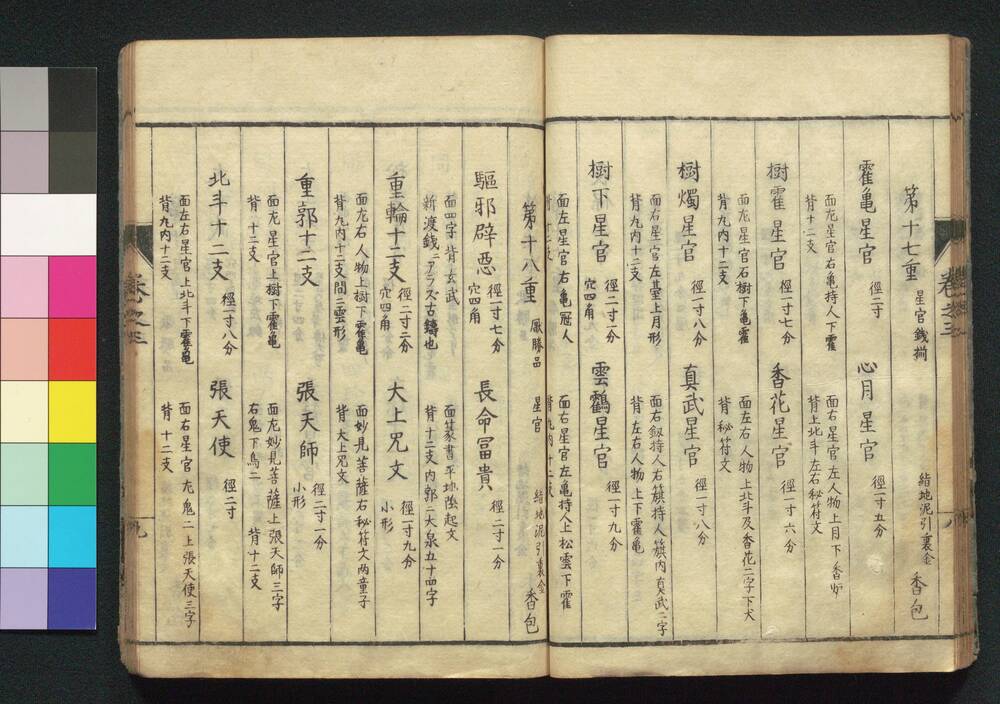 第十七重 星官銭揃 緒地泥引裏金 香包
霍亀星官 徑二寸
面左星官右亀持人下霍
背十二支
心月星官 徑一寸五分
面右星官左人物上月下香炉
背上北斗左右秘符文
樹霍星官 徑一寸七分
面左星官右樹下亀霍
背九内十二支
香花星官 徑一寸六分
面左右人物上北斗及香花二字下犬
背秘符文
樹燭星官 徑一寸八分
面右星官左基上月形
背九内十二支
真武星官 徑一寸八分
面右釼持人右籏持人籏内真武二字
背左右人物上下霍亀
樹下星官 徑二寸一分 穴四角
面左星官右亀冠人
背十二支
雲鶴星官 徑一寸九分
面右星官左亀持人上松雲下霍
背九内十二支
第十八重 厭勝品 星官 緒地泥引裏金 香包
驅邪辟悪 徑一寸七分 穴四角
面四字背玄武
新渡銭ニアラズ古鑄也
長命冨貴 徑二寸一分
面篆書平地陰起文
背十二支内郭ニ大泉五十四字
重輪十二支 徑二寸二分 穴四角
面左右人物上樹下霍亀
背九内十二支間ニ雲形
大上咒文 徑一寸九分 小形
面妙見菩薩右秘符文両童子
背大上咒文
重郭十二支
面左星官上樹下霍亀
背十二支
張天師 徑二寸一分 小形
面左妙見菩薩上張天師三字
右鬼下烏二 背十二支
北斗十二支 徑一寸八分
面左右星官上北斗下霍亀
背九内十二支
張天使 徑二寸
面右星官左鬼二上張天使三字
背十二支
卷之三
卷之三